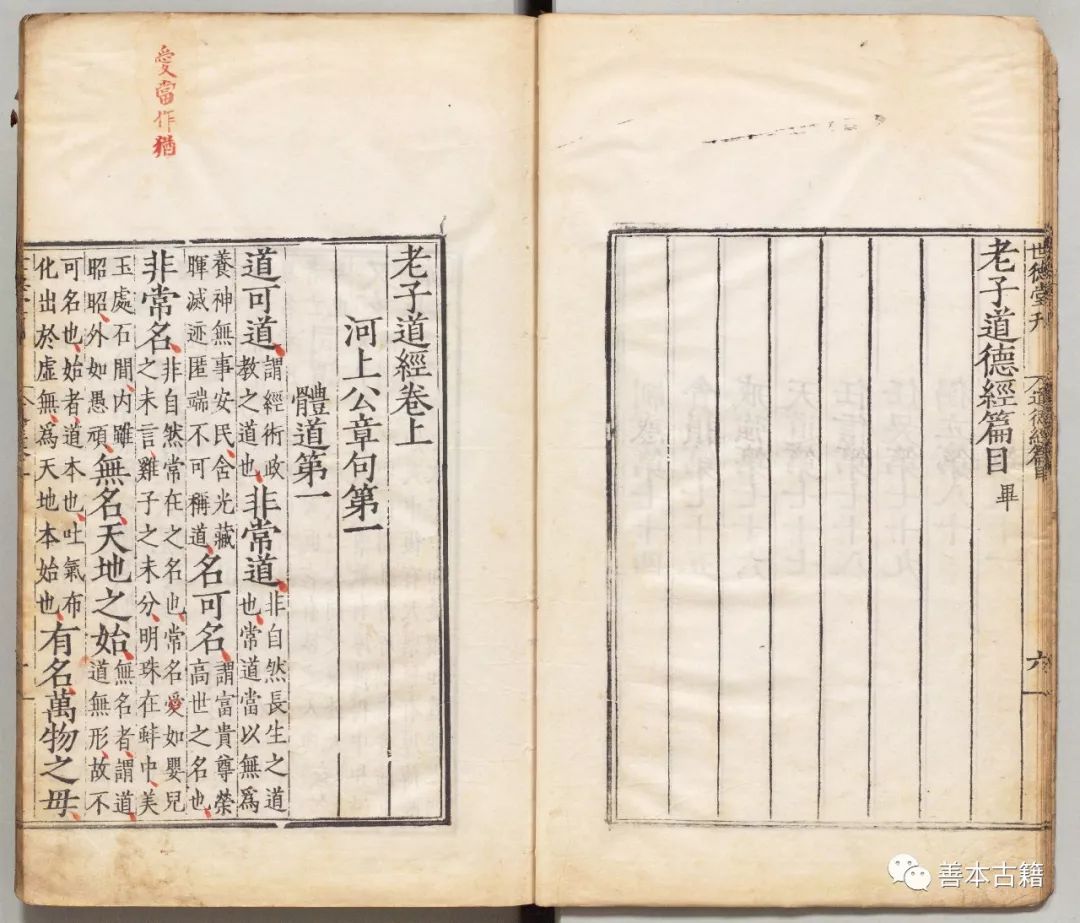 世德堂刊
道德經篇目
六
老子道德經篇目畢
愛當作猶
老子道經卷上
河上公章句第一
體道第一
道可道謂經術政教之道也非常道非自然長生之道也常道當以無爲
養神無事安民含光藏暉滅迹匿端不可稱道名可名謂富貴尊榮高世之名也
非常名非自然常在之名也常名愛如嬰兒之未言雞子之未分明珠在蚌中美
玉處石間内雖昭昭外如愚頑無名天地之始無名者謂道道無形故不
可名也始者道本也吐氣布化出於虛無爲天地本始也有名萬物之母
善本古籍